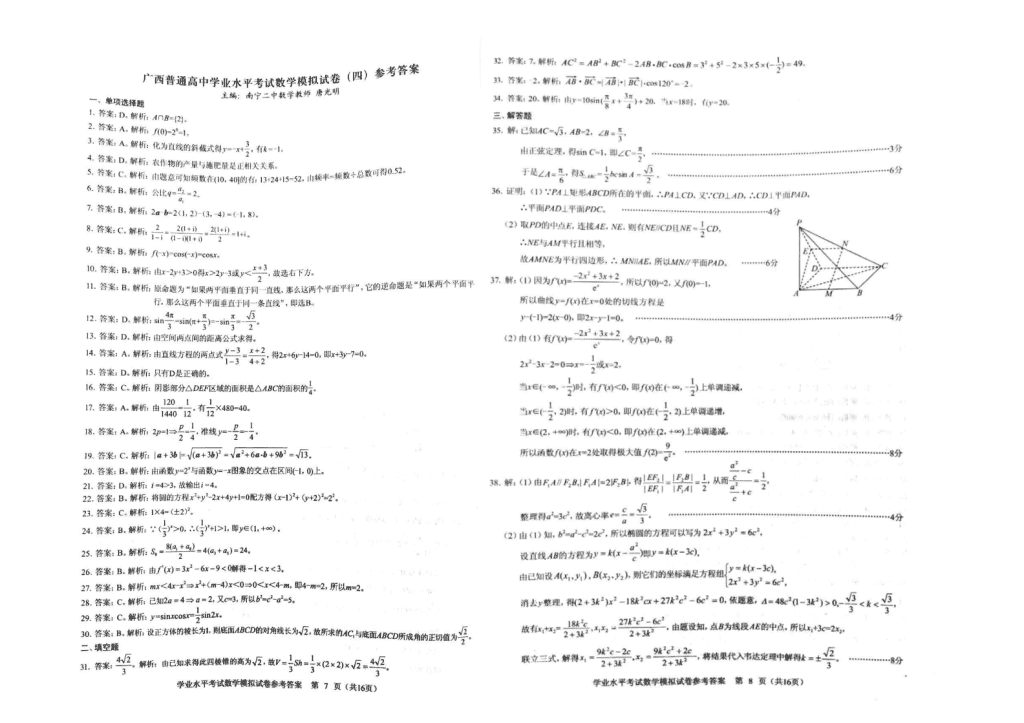 广西普通高中学业水平考试数学模拟试卷（四）参考答案
主编：南宁二中数学教师 唐光明
一、单项选择题
1. 答案：D。解析：A∩B={2}。
2. 答案：A。解析：f(0)=2⁰=1。
3. 答案：A。解析：化为直线的斜截式得y=-x+3/2，有k=-1。
4. 答案：D。解析：农作物的产量与施肥量是正相关关系。
5. 答案：C。解析：由题意可知频数在(10, 40]的有：13+24+15=52，由频率=频数÷总数可得0.52。
6. 答案：B。解析：公比q=a₂/a₁=2。
7. 答案：B。解析：2a-b=2(1, 2)-(3, -4)=(-1, 8)。
8. 答案：C。解析：2/(1-i)=2(1+i)/((1-i)(1+i))=2(1+i)/2=1+i。
9. 答案：B。解析：f(-x)=cos(-x)=cosx。
10. 答案：B。解析：由x-2y+3>0得x>2y-3或y<(x+3)/2，故选右下方。
11. 答案：B。解析：原命题为“如果两平面垂直于同一直线，那么这两个平面平行”，它的逆命题是“如果两个平面平
行，那么这两个平面垂直于同一条直线”，即选B。
12. 答案：D。解析：sin4π/3=sin(π+π/3)=-sinπ/3=-√3/2。
13. 答案：D。解析：由空间两点间的距离公式求得。
14. 答案：A。解析：由直线方程的两点式(y-3)/(1-3)=(x+2)/(4+2)，得2x+6y-14=0，即x+3y-7=0。
15. 答案：D。解析：只有D是正确的。
16. 答案：C。解析：阴影部分△DEF区域的面积是△ABC的面积的1/4。
17. 答案：A。解析：由120/1440=1/12，有1/12×480=40。
18. 答案：A。解析：2p=1⇒p/2=1/4，准线y=-p/2=-1/4。
19. 答案：C。解析：|a+3b|=√(a+3b)²=√(a²+6a·b+9b²)=√13。
20. 答案：B。解析：由函数y=2ˣ与函数y=-x图象的交点在区间(-1, 0)上。
21. 答案：D。解析：i=4>3，故输出i=4。
22. 答案：B。解析：将圆的方程x²+y²-2x+4y+1=0配方得(x-1)²+(y+2)²=2²。
23. 答案：C。解析：1×4=(±2)²。
24. 答案：B。解析：∵(1/3)ˣ>0，∴(1/3)ˣ+1>1，即y∈(1, +∞)。
25. 答案：B。解析：S₈=8(a₁+a₈)/2=4(a₁+a₈)=24。
26. 答案：B。解析：由f′(x)=3x²-6x-9<0解得-1<x<3。
27. 答案：B。解析：mx<4x-x²⇒x²+(m-4)x<0⇒0<x<4-m，即4-m=2，所以m=2。
28. 答案：C。解析：已知2a=4⇒a=2，又c=3，所以b²=c²-a²=5。
29. 答案：C。解析：y=sinxcosx=1/2sin2x。
30. 答案：B。解析：设正方体的棱长为1，则底面ABCD的对角线长为√2，故所求的AC₁与底面ABCD所成角的正切值为√2/2。
二、填空题
31. 答案：4√2/3。解析：由已知求得此四棱锥的高为√2，故V=1/3Sh=1/3×(2×2)×√2=4√2/3。
学业水平考试数学模拟试卷参考答案 第 7 页（共16页）
32. 答案：7。解析：AC²=AB²+BC²-2AB·BC·cosB=3²+5²-2×3×5×(-1/2)=49。
33. 答案：-2。解析：AB·BC=|AB|·|BC|·cos120°=-2。
34. 答案：20。解析：由y=10sin(π/8x+3π/4)+20，当x=18时，有y=20。
三、解答题
35. 解：已知AC=√3，AB=2，∠B=π/3，
由正弦定理，得sin C=1，即∠C=π/2，……3分
于是∠A=π/6，得S△ABC=1/2bcsin A=√3/2。……6分
36. 证明：(1)∵PA⊥矩形ABCD所在的平面，∴PA⊥CD，又∵CD⊥AD，∴CD⊥平面PAD，
∴平面PAD⊥平面PDC。……4分
(2)取PD的中点E，连接AE、NE，则有NE∥CD且NE=1/2CD，
∴NE与AM平行且相等，
故AMNE为平行四边形，∴MN∥AE，所以MN∥平面PAD。……6分
P
E
N
D
C
A
M
B
37. 解：(1)因为f′(x)=(-2x²+3x+2)/eˣ，所以f′(0)=2，又f(0)=-1，
所以曲线y=f(x)在x=0处的切线方程是
y-(-1)=2(x-0)，即2x-y-1=0。……4分
(2)由(1)有f′(x)=(-2x²+3x+2)/eˣ，令f′(x)=0，得
2x²-3x-2=0⇒x=-1/2或x=2，
当x∈(-∞，-1/2)时，有f′(x)<0，即f(x)在(-∞，-1/2)上单调递减，
当x∈(-1/2，2)时，有f′(x)>0，即f(x)在(-1/2，2)上单调递增，
当x∈(2，+∞)时，有f′(x)<0，即f(x)在(2，+∞)上单调递减，
所以函数f(x)在x=2处取得极大值f(2)=9/e²。……8分
38. 解：(1)由F₁A∥F₂B，|F₁A|=2|F₂B|，得|EF₂|/|EF₁|=|F₂B|/|F₁A|=1/2，从而(a²/c-c)/(a²/c+c)=1/2，
整理得a²=3c²，故离心率e=c/a=√3/3。……4分
(2)由(1)知，b²=a²-c²=2c²，所以椭圆的方程可以写为2x²+3y²=6c²，
设直线AB的方程为y=k(x-a²/c)即y=k(x-3c)，
由已知设A(x₁,y₁)，B(x₂,y₂)，则它们的坐标满足方程组{y=k(x-3c)，2x²+3y²=6c²，
消去y整理，得(2+3k²)x²-18k²cx+27k²c²-6c²=0，依题意，Δ=48c²(1-3k²)>0，-√3/3<k<√3/3，
故有x₁+x₂=18k²c/(2+3k²)，x₁x₂=(27k²c²-6c²)/(2+3k²)，由题设知，点B为线段AE的中点，所以x₁+3c=2x₂，
联立三式，解得x₁=(9k²c-2c)/(2+3k²)，x₂=(9k²c+2c)/(2+3k²)，将结果代入韦达定理中解得k=±√2/3。……8分
学业水平考试数学模拟试卷参考答案 第 8 页（共16页）